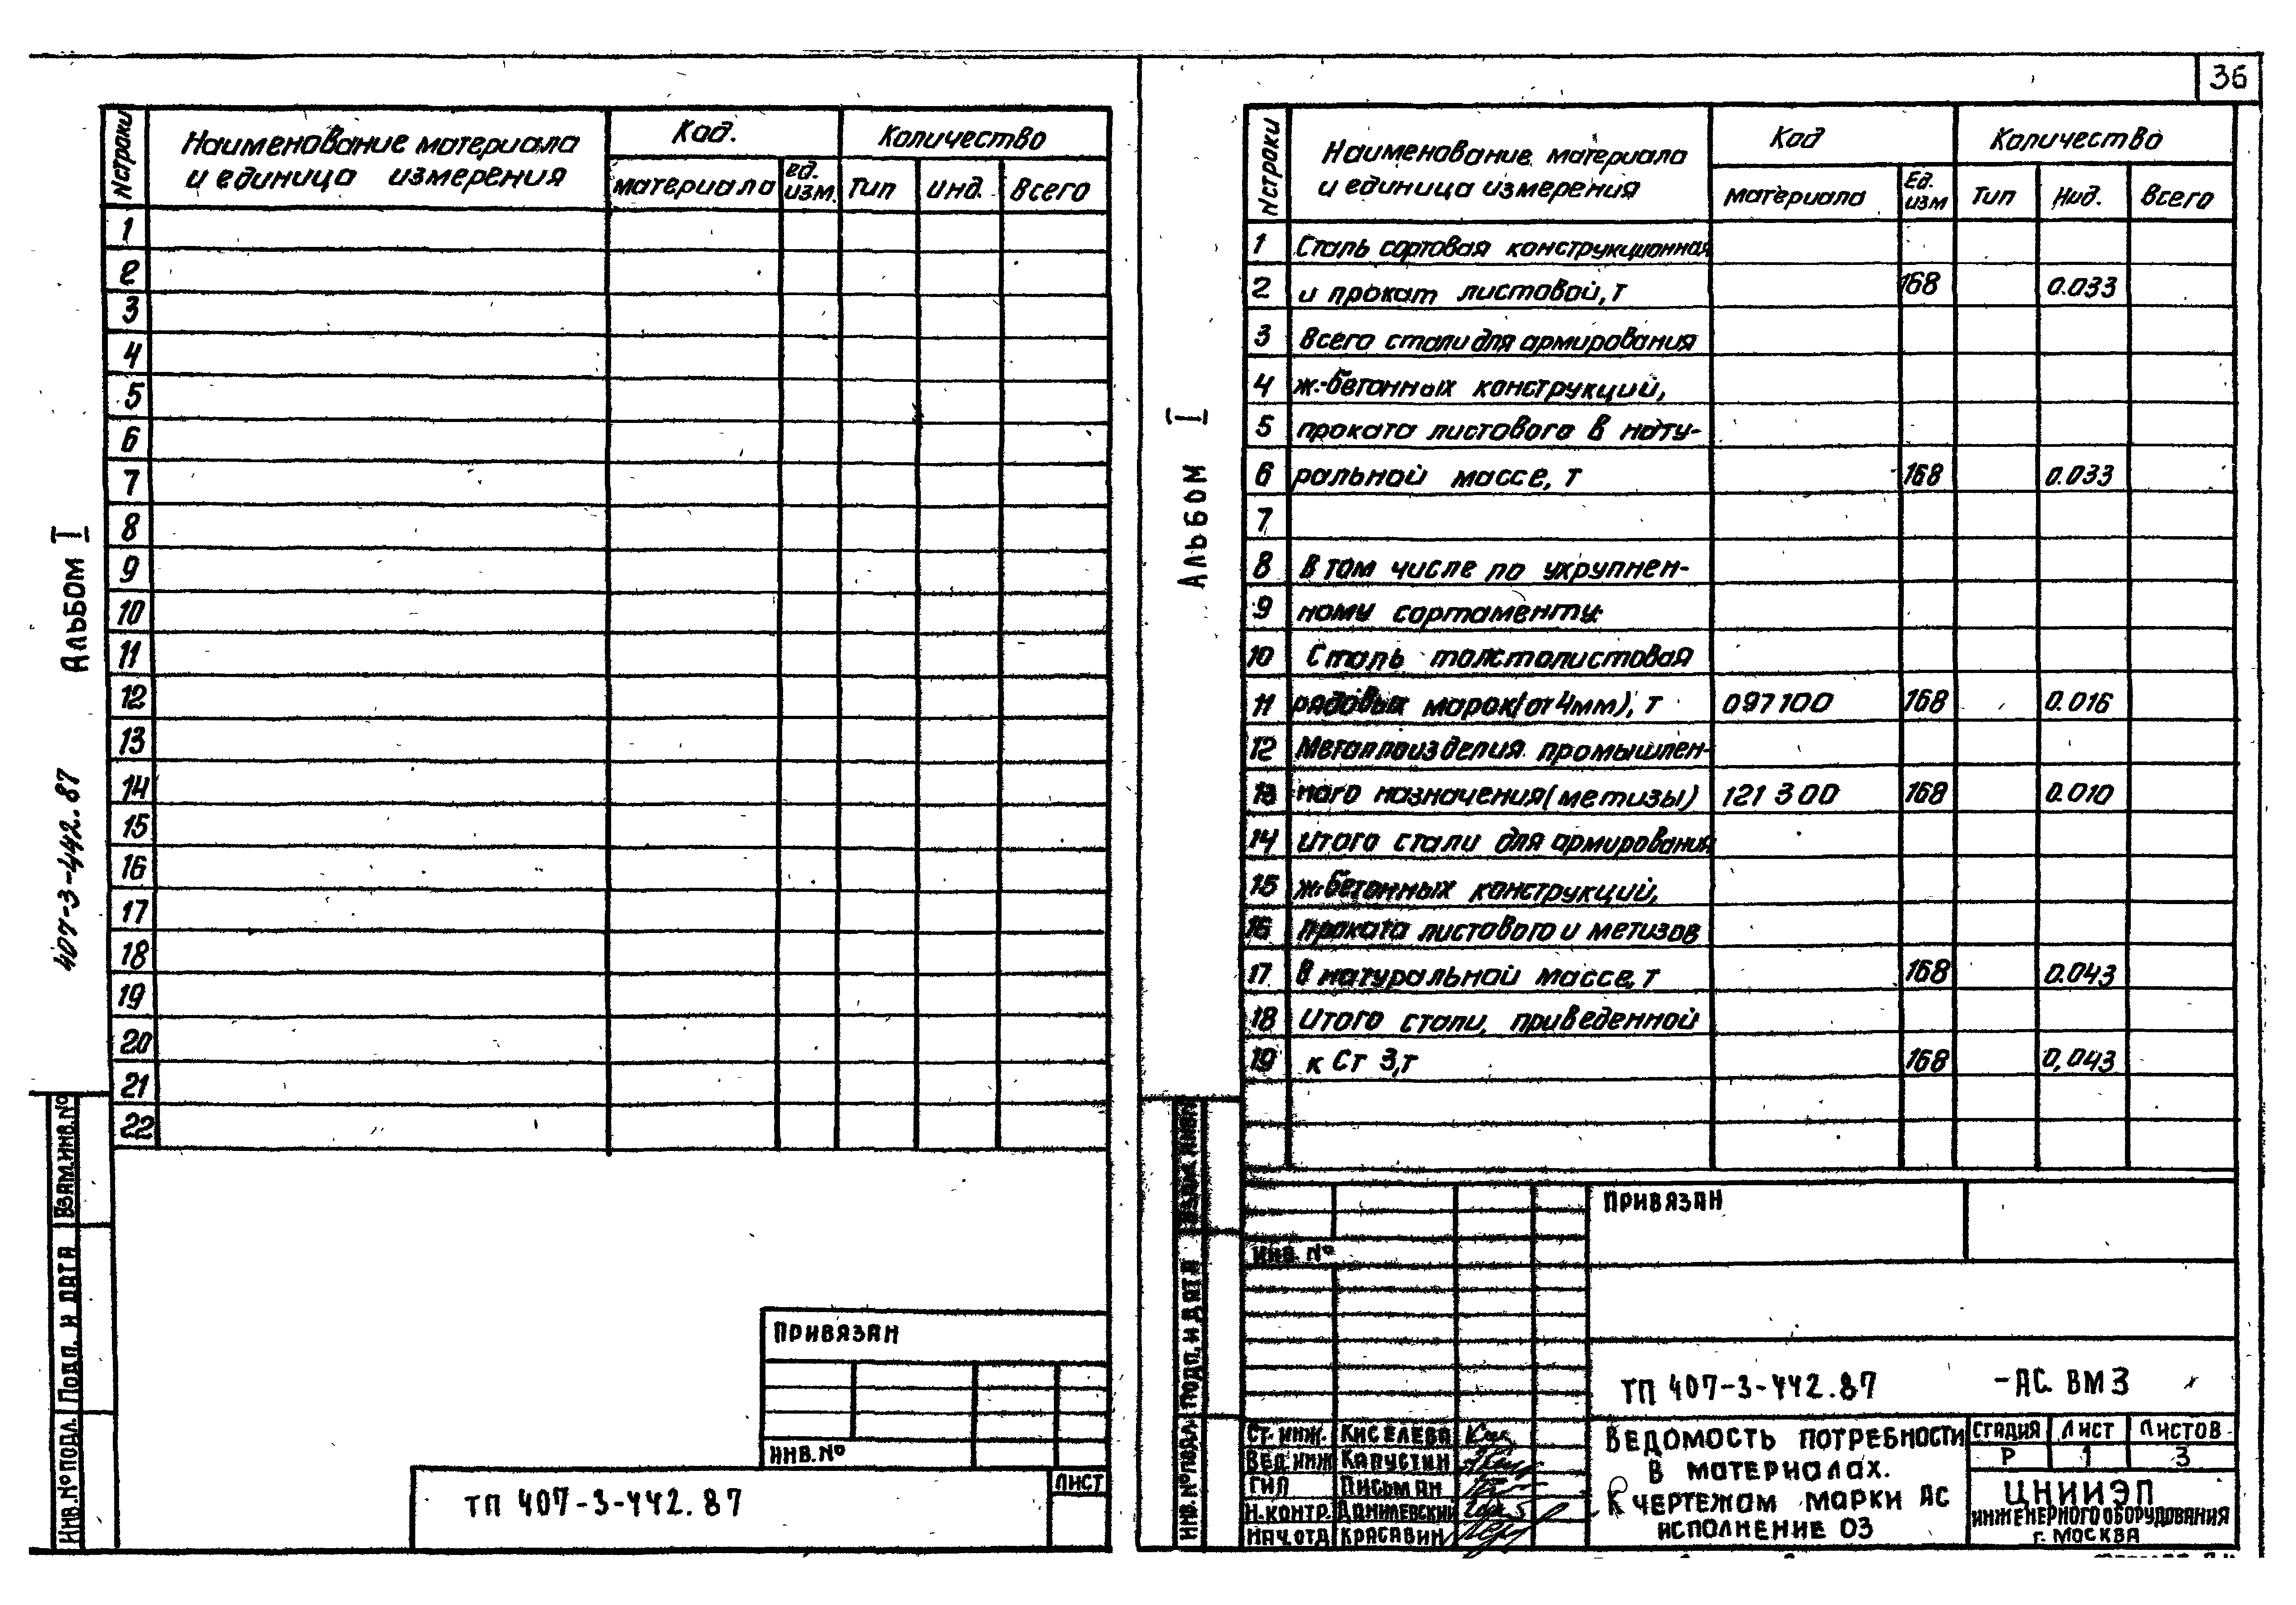 36
N строки
Наименование материала
и единица измерения
Код.
материала
ед.
изм.
Количество
тип
инд.
Всего
1
2
3
4
5
6
7
8
9
10
11
12
13
14
15
16
17
18
19
20
21
22
Альбом I
407-3-442.87
Взам.инв.№
Подп. и дата
Инв.№ подл.
Привязан
Инв.№
ТП 407-3-442.87
Лист
N строки
Наименование материала
и единица измерения
Код
материала
Ед.
изм
Количество
Тип
Инд.
Всего
1 Сталь сортовая конструкционная
2 и прокат листовой, т 168 0.033
3 Всего стали для армирования
4 ж.-бетонных конструкций,
5 проката листового в нату-
6 ральной массе, т 168 0.033
7
8 В том числе по укрупнен-
9 ному сортаменту:
10 Сталь толстолистовая
11 рядовых марок (от 4мм), т 097100 168 0.016
12 Металлоизделия промышлен-
13 ного назначения (метизы) 121 300 168 0.010
14 Итого стали для армирования
15 ж.бетонных конструкций,
16 проката листового и метизов
17 В натуральной массе, т 168 0.043
18 Итого стали, приведенной
19 к Ст 3, т 168 0,043
Альбом I
Взам. инв.№
Подп. и дата
Инв.№ подл.
Привязан
Инв. №
ТП 407-3-442.87 -АС. ВМ3
Ст. инж. Киселева
Вед. инж Капустин
ГИП Письман
Н.контр. Данилевский
Нач.отд Красавин
Ведомость потребности
в материалах.
К чертежам марки АС
исполнение 03
Стадия Лист Листов
Р 1 3
ЦНИИЭП
инженерного оборудования
г. Москва